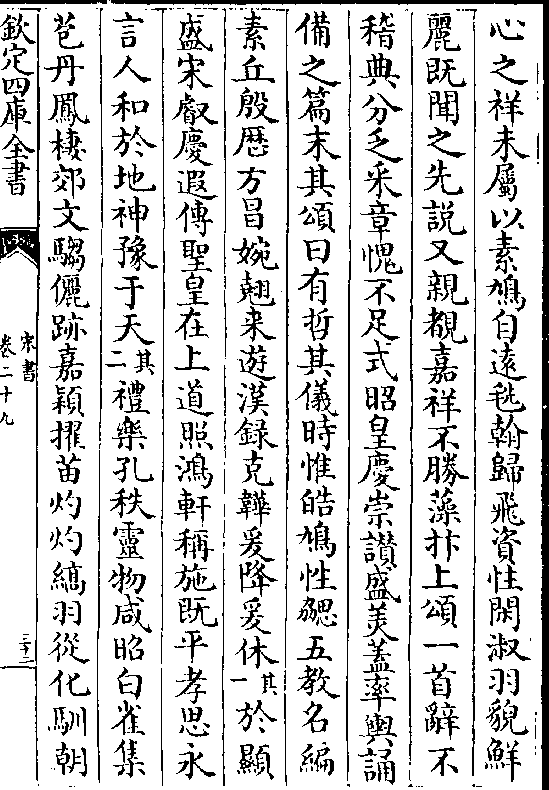 心之祥未屬以素鳩自遠毨翰歸飛資性閑淑羽貌鮮
麗既聞之先説又親覩嘉祥不勝藻抃上頌一首辭不
稽典分乏采章愧不足式昭皇慶崇讃盛美蓋率輿誦
備之篇末其頌曰有哲其儀時惟皓鳩性勰五教名編
素丘殷厯方昌婉翹来遊漢録克韡爰降爰休其一於顯
盛宋叡慶遐傳聖皇在上道照鴻軒稱施既平孝思永
言人和於地神豫于天其二禮樂孔秩靈物咸昭白雀集
苞丹鳳棲郊文騶儷跡嘉穎擢苗灼灼縞羽從化馴朝
欽定四庫全書
宋書
卷二十九
三十二